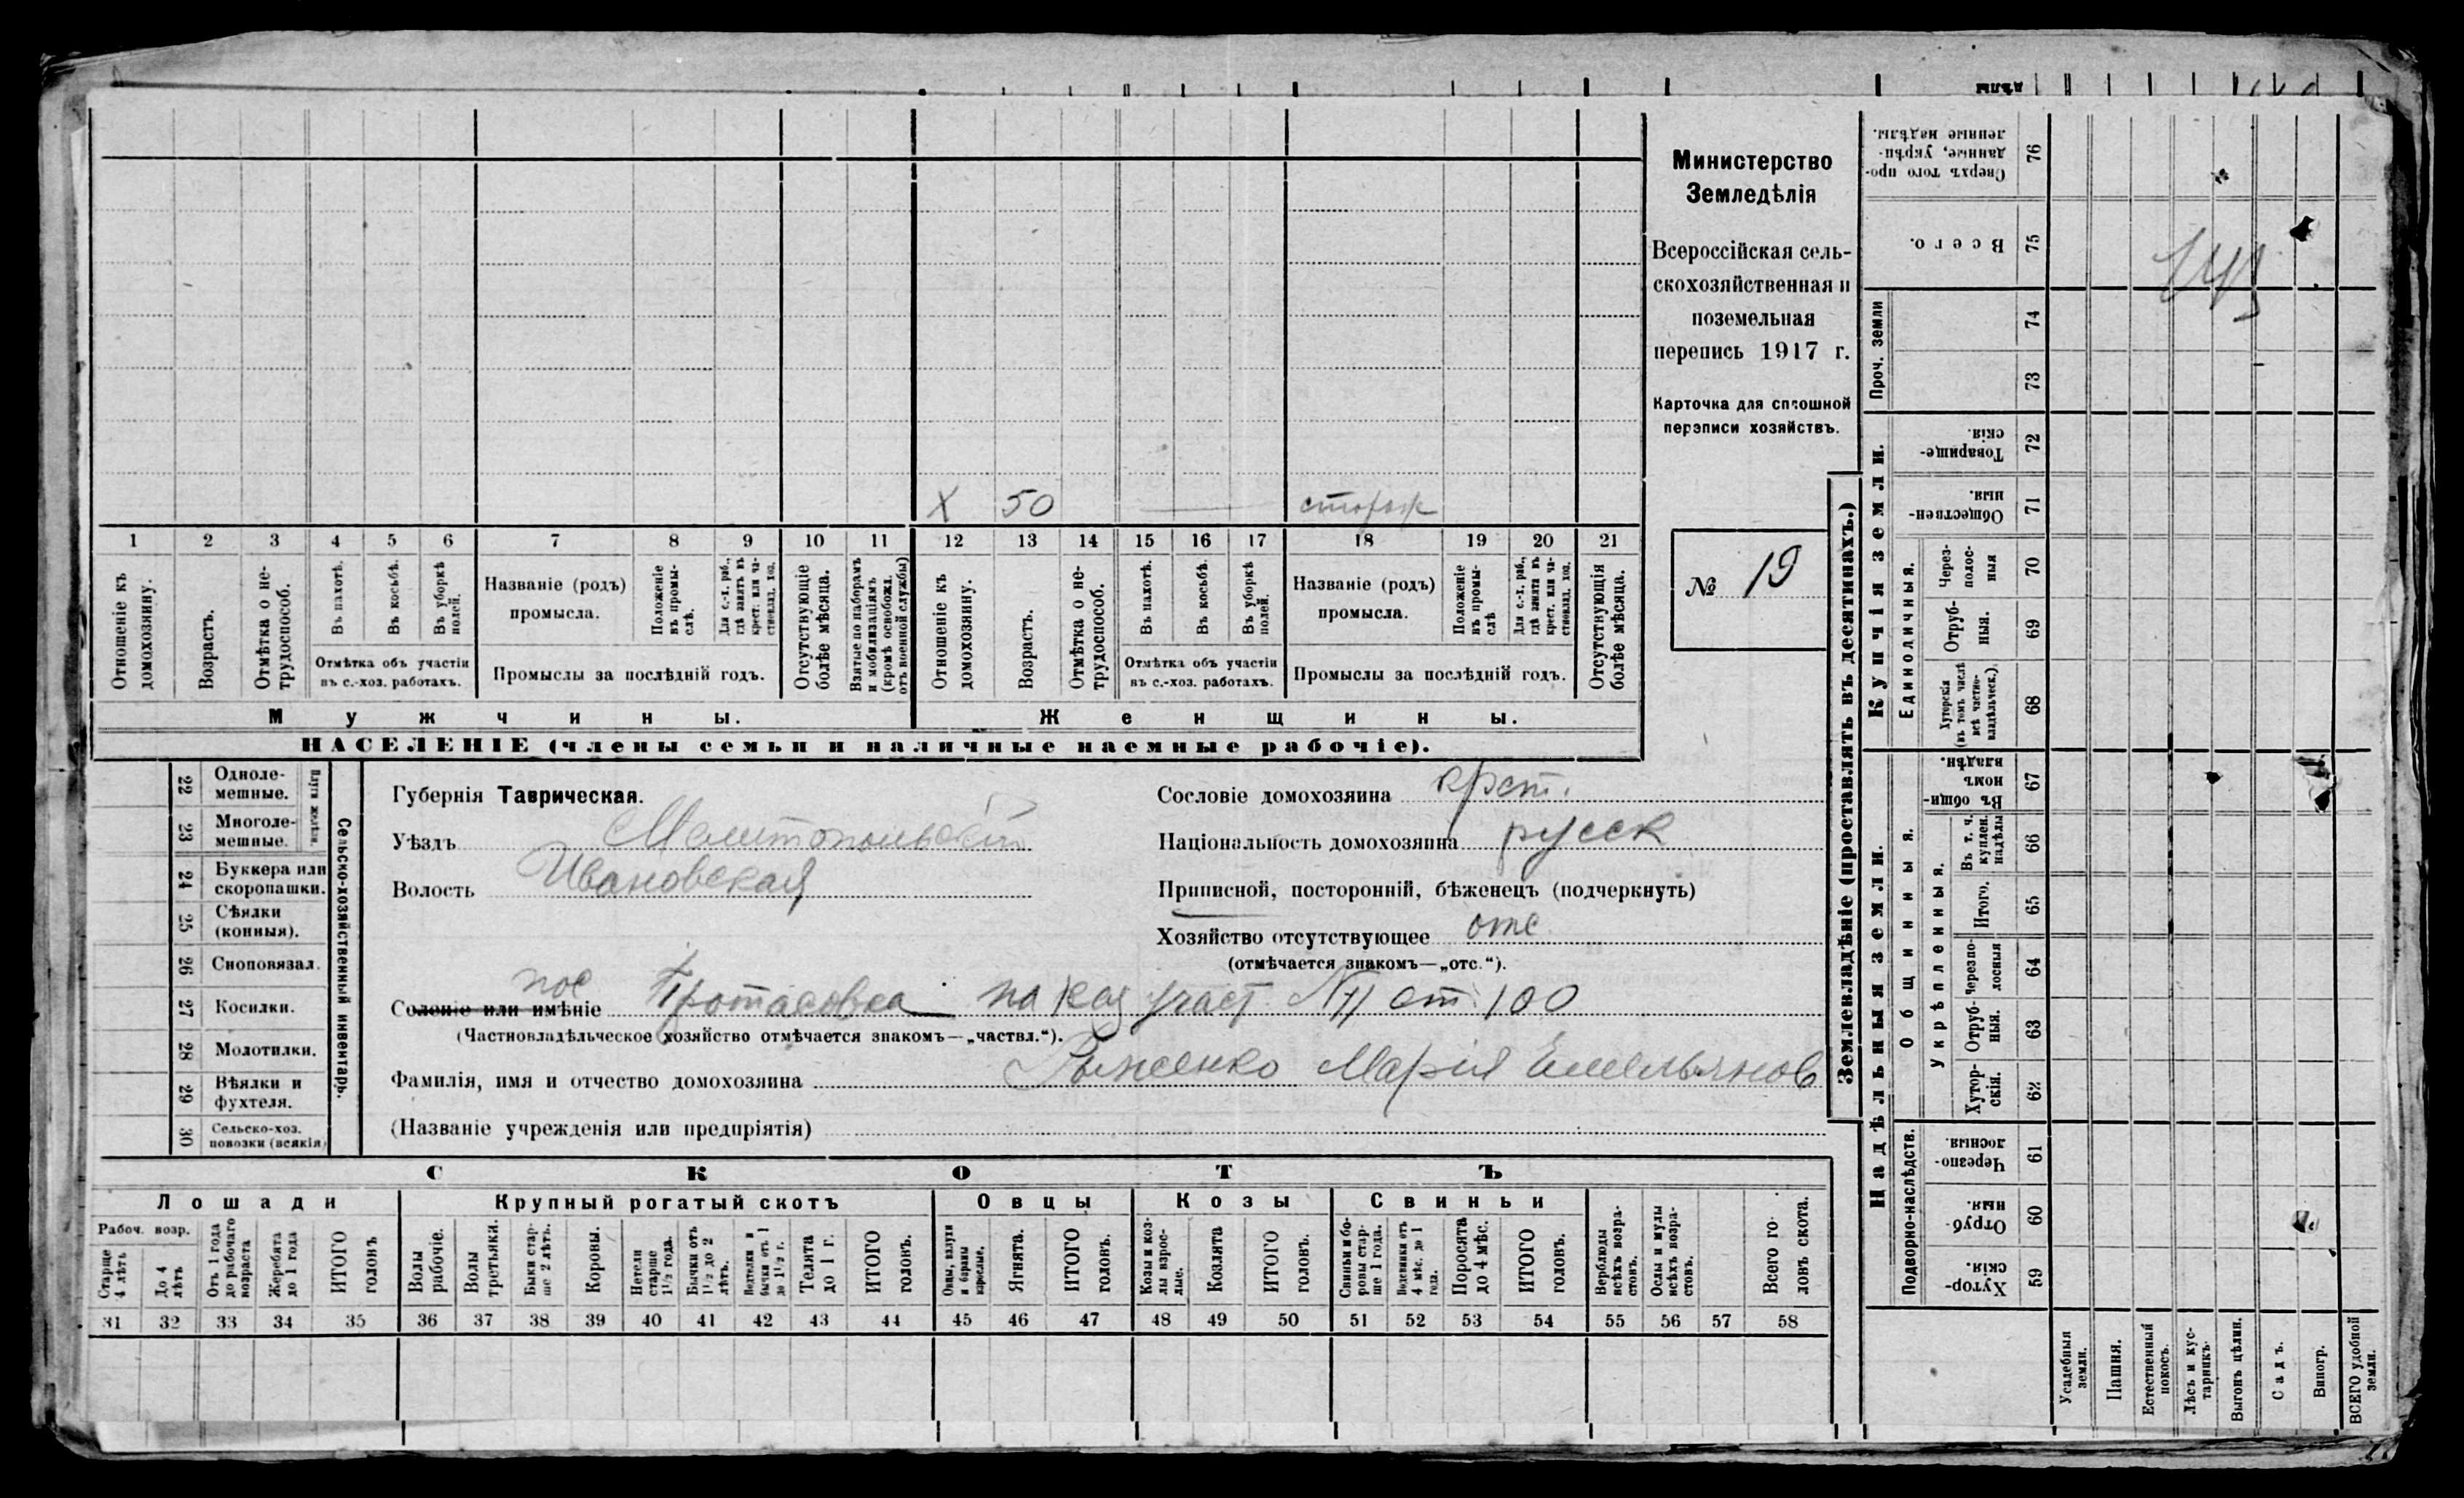 дѣлы
Министерство
Земледѣлія
Всероссійская сель-
скохозяйственная и
поземельная
перепись 1917 г.
Карточка для сплошной
переписи хозяйствъ.
№ 19
X 50 — сторож
1 2 3 4 5 6 7 8 9 10 11 12 13 14 15 16 17 18 19 20 21
Отношеніе къ
домохозяину.
Возрастъ.
Отмѣтка о не-
трудоспособ.
Въ пахотѣ.
Въ косьбѣ.
Въ уборкѣ
полей.
Отмѣтка объ участіи
въ с.-хоз. работахъ.
Названіе (родъ)
промысла.
Положеніе
въ промы-
слѣ.
Для с.-х. раб.,
гдѣ занятъ въ
крест. или ча-
стновлад. хоз.
Промыслы за послѣдній годъ.
Отсутствующіе
болѣе мѣсяца.
Взятые по наборамъ
и мобилизаціямъ
(кромѣ освобожд.
отъ военной службы)
Отношеніе къ
домохозяину.
Возрастъ.
Отмѣтка о не-
трудоспособ.
Въ пахотѣ.
Въ косьбѣ.
Въ уборкѣ
полей.
Отмѣтка объ участіи
въ с.-хоз. работахъ.
Названіе (родъ)
промысла.
Положеніе
въ промы-
слѣ
Для с.-х. раб.,
гдѣ занята въ
крест. или ча-
стновлад. хоз.
Промыслы за послѣдній годъ.
Отсутствующія
болѣе мѣсяца.
Мужчины.
Женщины.
НАСЕЛЕНІЕ (члены семьи и наличные наемные рабочіе).
22 Одноле-
мешные.
23 Многоле-
мешные.
24 Буккера или
скоропашки.
25 Сѣялки
(конныя).
26 Сноповязал.
27 Косилки.
28 Молотилки.
29 Вѣялки и
фухтеля.
30 Сельско-хоз.
повозки (всякія)
Сельско-хозяйственный инвентарь.
Губернія Таврическая.
Уѣздъ Мелитопольскій
Волость Ивановская
Сословіе домохозяина крест.
Національность домохозяина русск
Приписной, посторонній, бѣженецъ (подчеркнуть)
Хозяйство отсутствующее отс
(отмѣчается знакомъ—„отс.“).
пос
Селеніе или имѣніе Протасовка на Каз участ. № 11 от 100
(Частновладѣльческое хозяйство отмѣчается знакомъ—„частвл.“).
Фамилія, имя и отчество домохозяина Рыженко Марія Емельянов
(Названіе учрежденія или предпріятія)
СКОТЪ
Лошади
Крупный рогатый скотъ
Овцы
Козы
Свиньи
Рабоч. возр.
Старще
4 лѣтъ
До 4
лѣтъ
Отъ 1 года
до рабочаго
возраста
Жеребята
до 1 года
ИТОГО
головъ
Волы
рабочіе.
Волы
третьяки.
Быки стар-
ше 2 лѣтъ.
Коровы.
Нетели
старше
1 1/2 года.
Бычки отъ
1 1/2 до 2
лѣтъ.
бычки отъ 1
до 1 1/2 г.
Телята
до 1 г.
ИТОГО
головъ.
Овцы, валухи
и бараны
взрослые.
Ягнята.
ИТОГО
головъ.
Козы и коз-
лы взрос-
лые.
Козлята
ИТОГО
головъ.
Свиньи и бо-
ровы стар-
ше 1 года.
Подсвинки отъ
4 мѣс. до 1
года.
Поросята
до 4 мѣс.
ИТОГО
головъ.
Верблюды
всѣхъ возра-
стовъ.
Ослы и мулы
всѣхъ возра-
стовъ.
Всего го-
ловъ скота.
31 32 33 34 35 36 37 38 39 40 41 42 43 44 45 46 47 48 49 50 51 52 53 54 55 56 57 58
Землевладѣніе (проставлять въ десятинахъ.)
Сверхъ того про-
данные, укрѣп-
ленные надѣлы.
76
Всего.
75
Проч. земли
74
73
Купчія земли.
Товарище-
скія.
72
Обществен-
ныя.
71
Единоличныя.
Через-
полос-
ныя
70
Отруб-
ныя.
69
Хуторскія
(въ томъ числѣ
всѣ частно-
владѣльческ.).
68
Надѣльныя земли.
Общинныя.
Въ общи-
номъ
владѣн.
67
Укрѣпленныя.
Въ т. ч.
куплен.
надѣлы
66
Итого.
65
Черезпо-
лосныя
64
Отруб-
ныя.
63
Хутор-
скія.
62
Подворно-наслѣдств.
Черезпо-
лосныя.
61
Отруб-
ныя.
60
Хутор-
скія.
59
Усадебныя
земли.
Пашня.
Естественный
покосъ.
Лѣсъ и кус-
тарникъ.
Выгонъ цѣлин.
Садъ.
Виногр.
ВСЕГО удобной
земли.